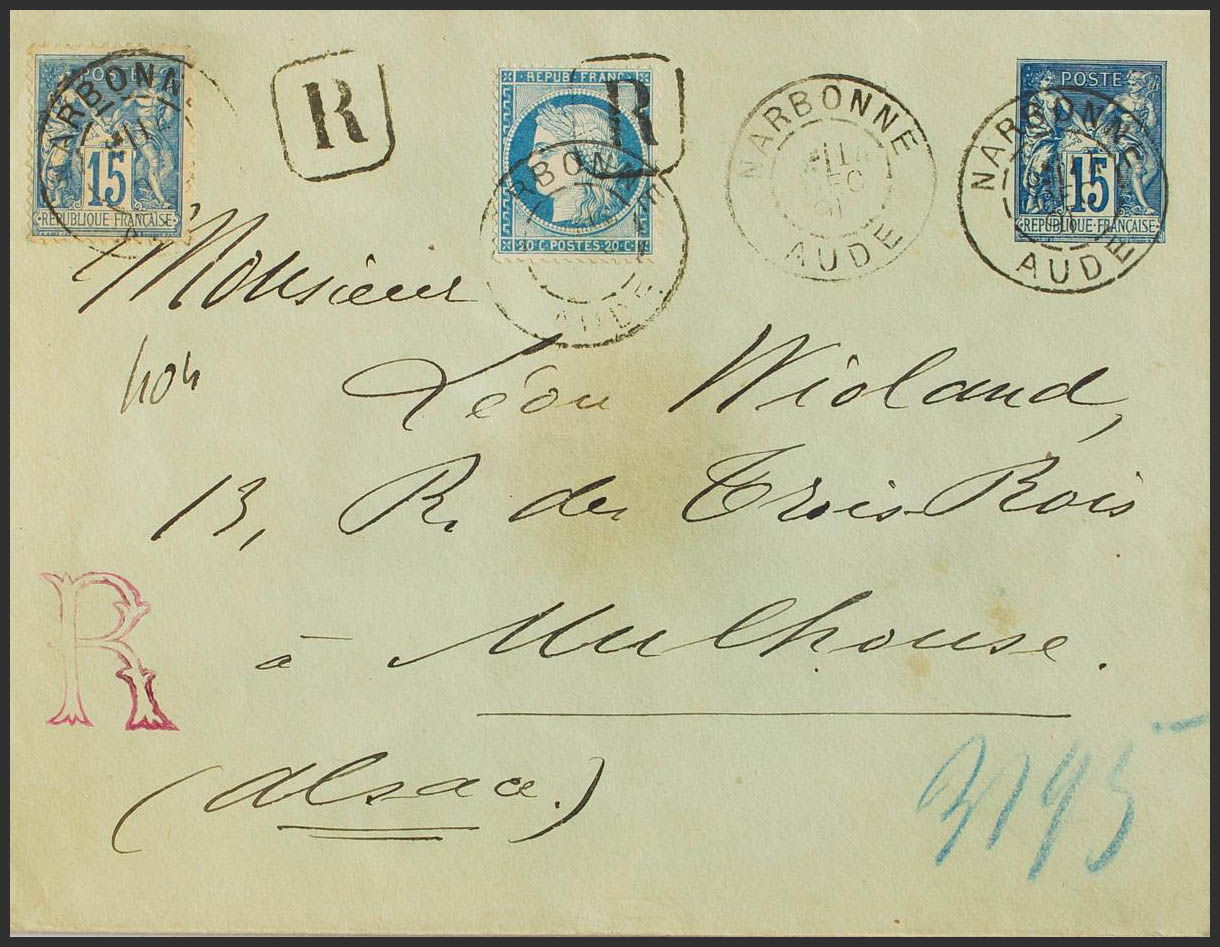 POSTE
15
RÉPUBLIQUE FRANÇAISE
NARBONNE
R
REPUB. FRANC.
20 C. POSTES 20 C.
NARBONNE
AUDE
R
NARBONNE
AUDE
POSTE
15
RÉPUBLIQUE FRANÇAISE
NARBONNE
AUDE
Monsieur
404
Léon Wioland,
13, R. des Trois Rois
R
à Mulhouse.
(Alsace.)
3195